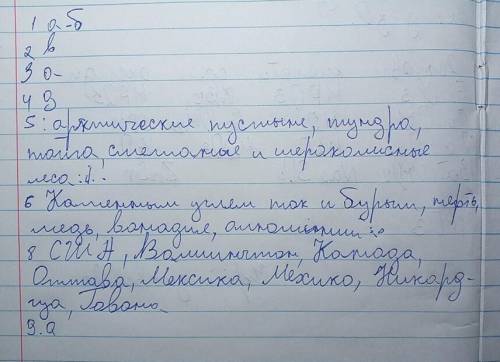 1 а-б
2 в
3 а
4 З
5: арктические пустыне, тундра,
тайга, смешаные и широколисные
леса
6 Каменным углем так и бурым, нефть,
медь, ванадия, алюминий
8 США, Вашингтон, Канада,
Оттава, Мексика, Мехико, Никара-
гуа, Гавана
9. а